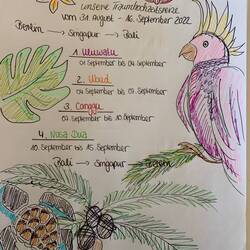 unsere Traumhochzeitsreise
vom 31. August - 16. September 2022
Bremen → Singapur → Bali
1. Uluwatu
01. September bis 04. September
2. Ubud
04. September bis 07. September
3. Canggu
07. September bis 10. September
4. Nusa Dua
10. September bis 15. September
Bali → Singapur → Bremen